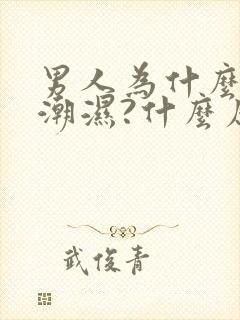 男人為什麼
潮濕?什麼
武俊青